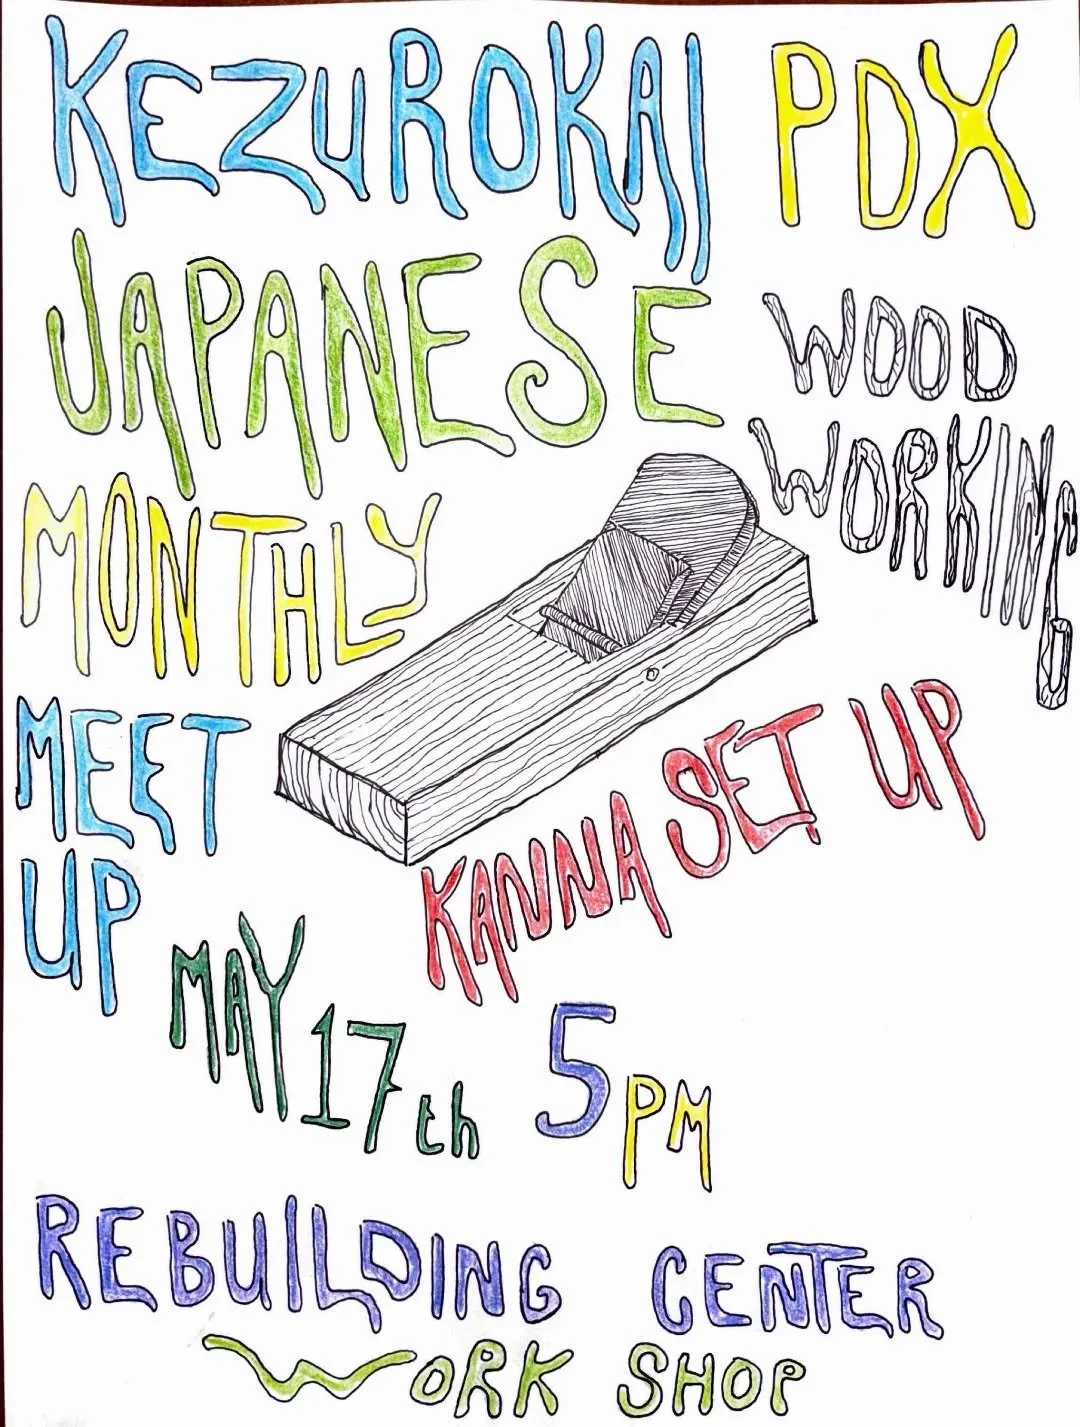 KEZUROKAI PDX
JAPANESE
WOOD
WORKING
MONTHLY
MEET
UP
KANNA SET UP
MAY 17th 5PM
REBUILDING CENTER
WORK SHOP